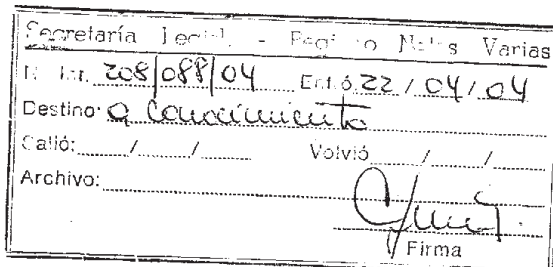 Secretaría Legisl. - Registro Notas Varias
N. Int. 208/088/04 Entró 22/04/04
Destino: a conocimiento
Salió: / / Volvió / /
Archivo:
Firma